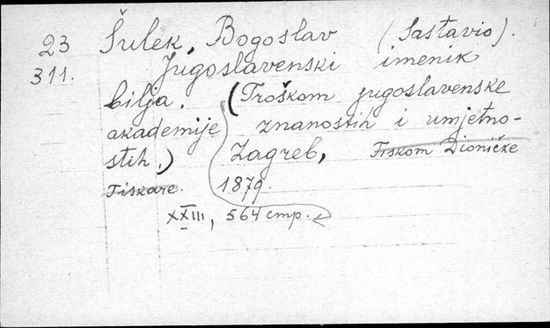 23 Šulek, Bogoslav (Sastavio).
311. Jugoslavenski imenik
bilja. (Troškom jugoslavenske
akademije znanostih i umjetno-
stih.) Zagreb, Tiskom Dioničke
Tiskare. 1879.
XXIII, 564 стр.